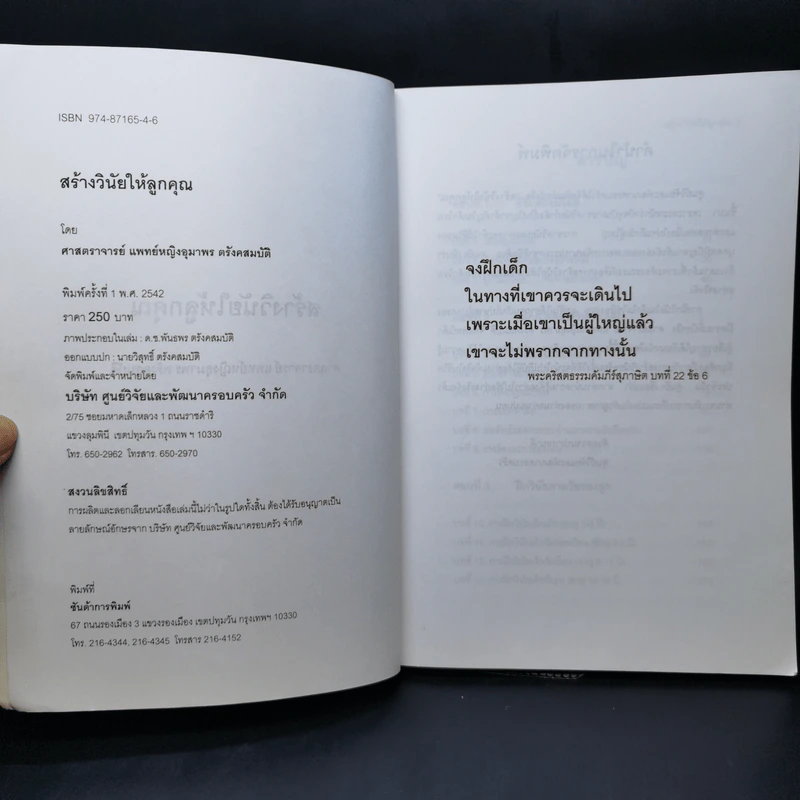 ISBN 974-87165-4-6
สร้างวินัยให้ลูกคุณ
โดย
ศาสตราจารย์ แพทย์หญิงอุมาพร ตรังคสมบัติ
พิมพ์ครั้งที่ 1 พ.ศ. 2542
ราคา 250 บาท
ภาพประกอบในเล่ม : ด.ช.พันธพร ตรังคสมบัติ
ออกแบบปก : นายวิสุทธิ์ ตรังคสมบัติ
จัดพิมพ์และจำหน่ายโดย
บริษัท ศูนย์วิจัยและพัฒนาครอบครัว จำกัด
2/75 ซอยมหาดเล็กหลวง 1 ถนนราชดำริ
แขวงลุมพินี เขตปทุมวัน กรุงเทพ ฯ 10330
โทร. 650-2962 โทรสาร. 650-2970
สงวนลิขสิทธิ์
การผลิตและลอกเลียนหนังสือเล่มนี้ไม่ว่าในรูปใดทั้งสิ้น ต้องได้รับอนุญาตเป็น
ลายลักษณ์อักษรจาก บริษัท ศูนย์วิจัยและพัฒนาครอบครัว จำกัด
พิมพ์ที่
ซันต้าการพิมพ์
67 ถนนรองเมือง 3 แขวงรองเมือง เขตปทุมวัน กรุงเทพฯ 10330
โทร. 216-4344, 216-4345 โทรสาร 216-4152
จงฝึกเด็ก
ในทางที่เขาควรจะเดินไป
เพราะเมื่อเขาเป็นผู้ใหญ่แล้ว
เขาจะไม่พรากจากทางนั้น
พระคริสตธรรมคัมภีร์สุภาษิต บทที่ 22 ข้อ 6